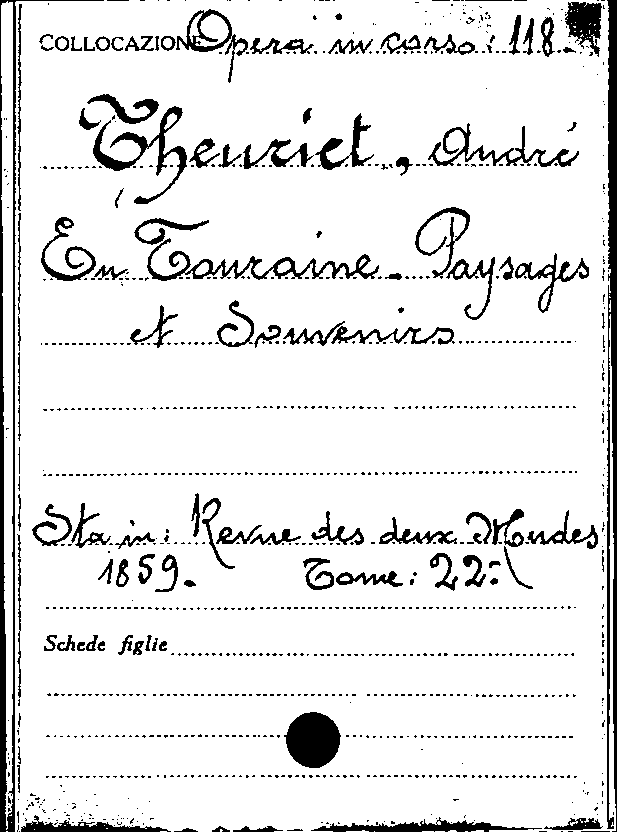 COLLOCAZIONE Opera in corso: 118.
Theuriet, André
En Touraine. Paysages
et Souvenirs
Sta in: Revue des deux Mondes
1859. Tome: 22:
Schede figlie